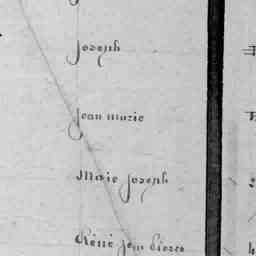 Joseph
Jean marie
Marie Joseph
Réné Jean Pierre